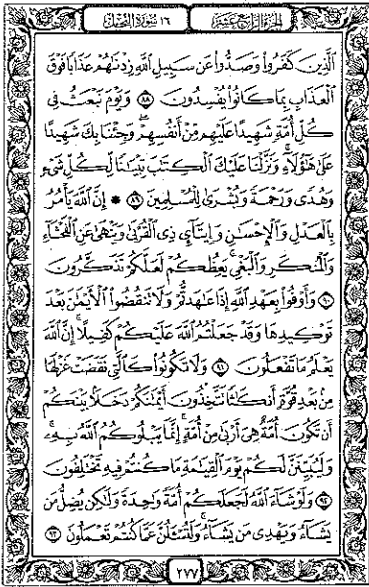 الجزء الرابع عشر ١٦ سورة النحل
ٱلَّذِينَ كَفَرُوا۟ وَصَدُّوا۟ عَن سَبِيلِ ٱللَّهِ زِدْنَٰهُمْ عَذَابًا فَوْقَ
ٱلْعَذَابِ بِمَا كَانُوا۟ يُفْسِدُونَ ٨٨ وَيَوْمَ نَبْعَثُ فِى
كُلِّ أُمَّةٍ شَهِيدًا عَلَيْهِم مِّنْ أَنفُسِهِمْ وَجِئْنَا بِكَ شَهِيدًا
عَلَىٰ هَٰٓؤُلَآءِ وَنَزَّلْنَا عَلَيْكَ ٱلْكِتَٰبَ تِبْيَٰنًا لِّكُلِّ شَىْءٍ
وَهُدًى وَرَحْمَةً وَبُشْرَىٰ لِلْمُسْلِمِينَ ٨٩ * إِنَّ ٱللَّهَ يَأْمُرُ
بِٱلْعَدْلِ وَٱلْإِحْسَٰنِ وَإِيتَآئِ ذِى ٱلْقُرْبَىٰ وَيَنْهَىٰ عَنِ ٱلْفَحْشَآءِ
وَٱلْمُنكَرِ وَٱلْبَغْىِ يَعِظُكُمْ لَعَلَّكُمْ تَذَكَّرُونَ
٩٠ وَأَوْفُوا۟ بِعَهْدِ ٱللَّهِ إِذَا عَٰهَدتُّمْ وَلَا تَنقُضُوا۟ ٱلْأَيْمَٰنَ بَعْدَ
تَوْكِيدِهَا وَقَدْ جَعَلْتُمُ ٱللَّهَ عَلَيْكُمْ كَفِيلًا إِنَّ ٱللَّهَ
يَعْلَمُ مَا تَفْعَلُونَ ٩١ وَلَا تَكُونُوا۟ كَٱلَّتِى نَقَضَتْ غَزْلَهَا
مِنۢ بَعْدِ قُوَّةٍ أَنكَٰثًا تَتَّخِذُونَ أَيْمَٰنَكُمْ دَخَلًۢا بَيْنَكُمْ
أَن تَكُونَ أُمَّةٌ هِىَ أَرْبَىٰ مِنْ أُمَّةٍ إِنَّمَا يَبْلُوكُمُ ٱللَّهُ بِهِۦ
وَلَيُبَيِّنَنَّ لَكُمْ يَوْمَ ٱلْقِيَٰمَةِ مَا كُنتُمْ فِيهِ تَخْتَلِفُونَ
٩٢ وَلَوْ شَآءَ ٱللَّهُ لَجَعَلَكُمْ أُمَّةً وَٰحِدَةً وَلَٰكِن يُضِلُّ مَن
يَشَآءُ وَيَهْدِى مَن يَشَآءُ وَلَتُسْـَٔلُنَّ عَمَّا كُنتُمْ تَعْمَلُونَ ٩٣
٢٧٧